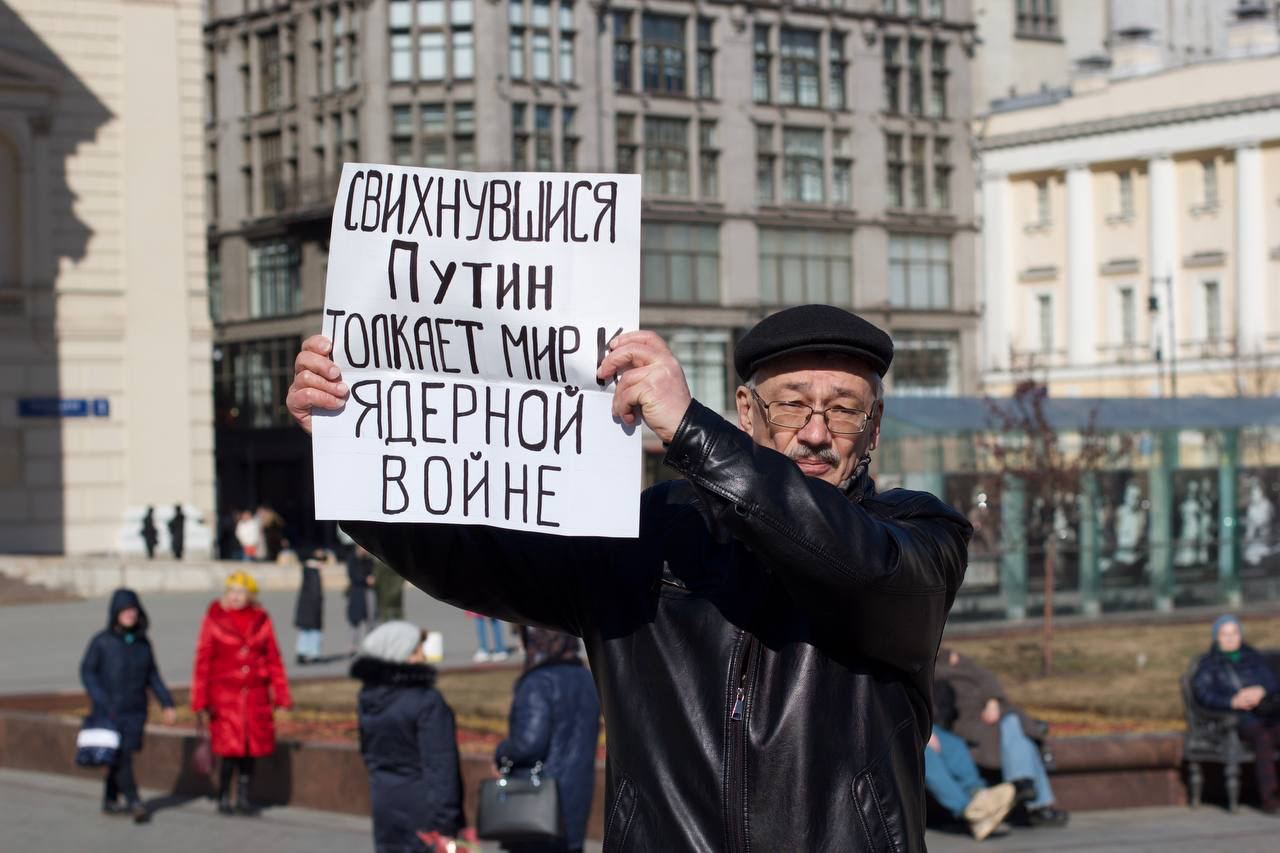 СВИХНУВШИСЯ
ПУТИН
ТОЛКАЕТ МИР К
ЯДЕРНОЙ
ВОЙНЕ